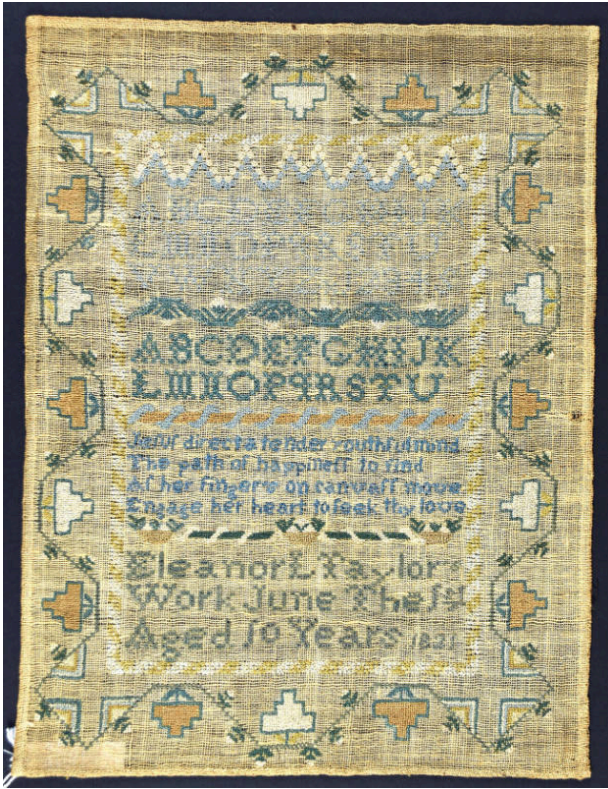 ABCDEFGHIJK
LMNOPQRSTU
direct a tender youthful mind
The path of happineſſ to find
As her fingers on canvaſſ move
Engage her heart to ſeek thy love
Eleanor L Taylors
Work June The
Aged 10 Years 1821